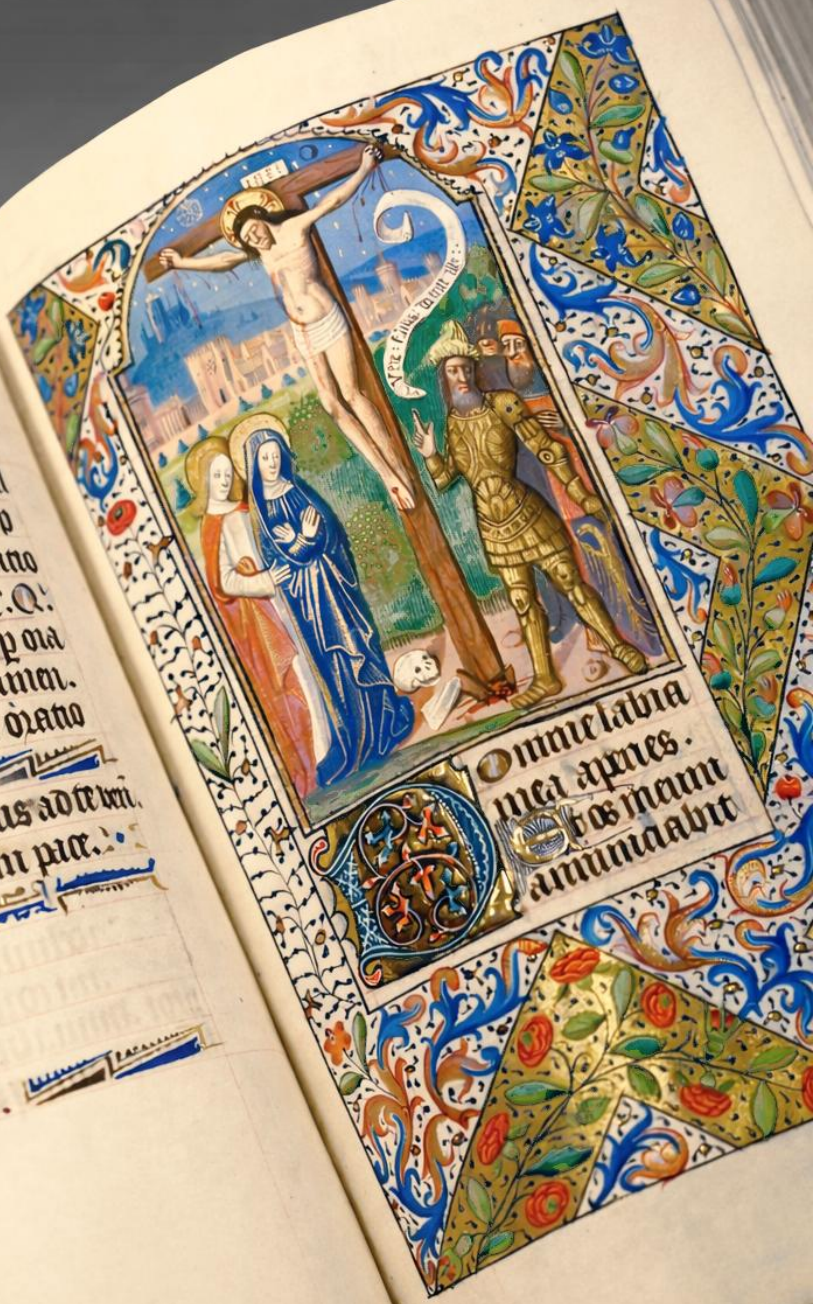 p ora
men.
oratio
us ad te veni.
m pace.
INRI
Vere : filius . dei erat iste :
Domine labia
mea aperies.
Et os meum
annunciabit